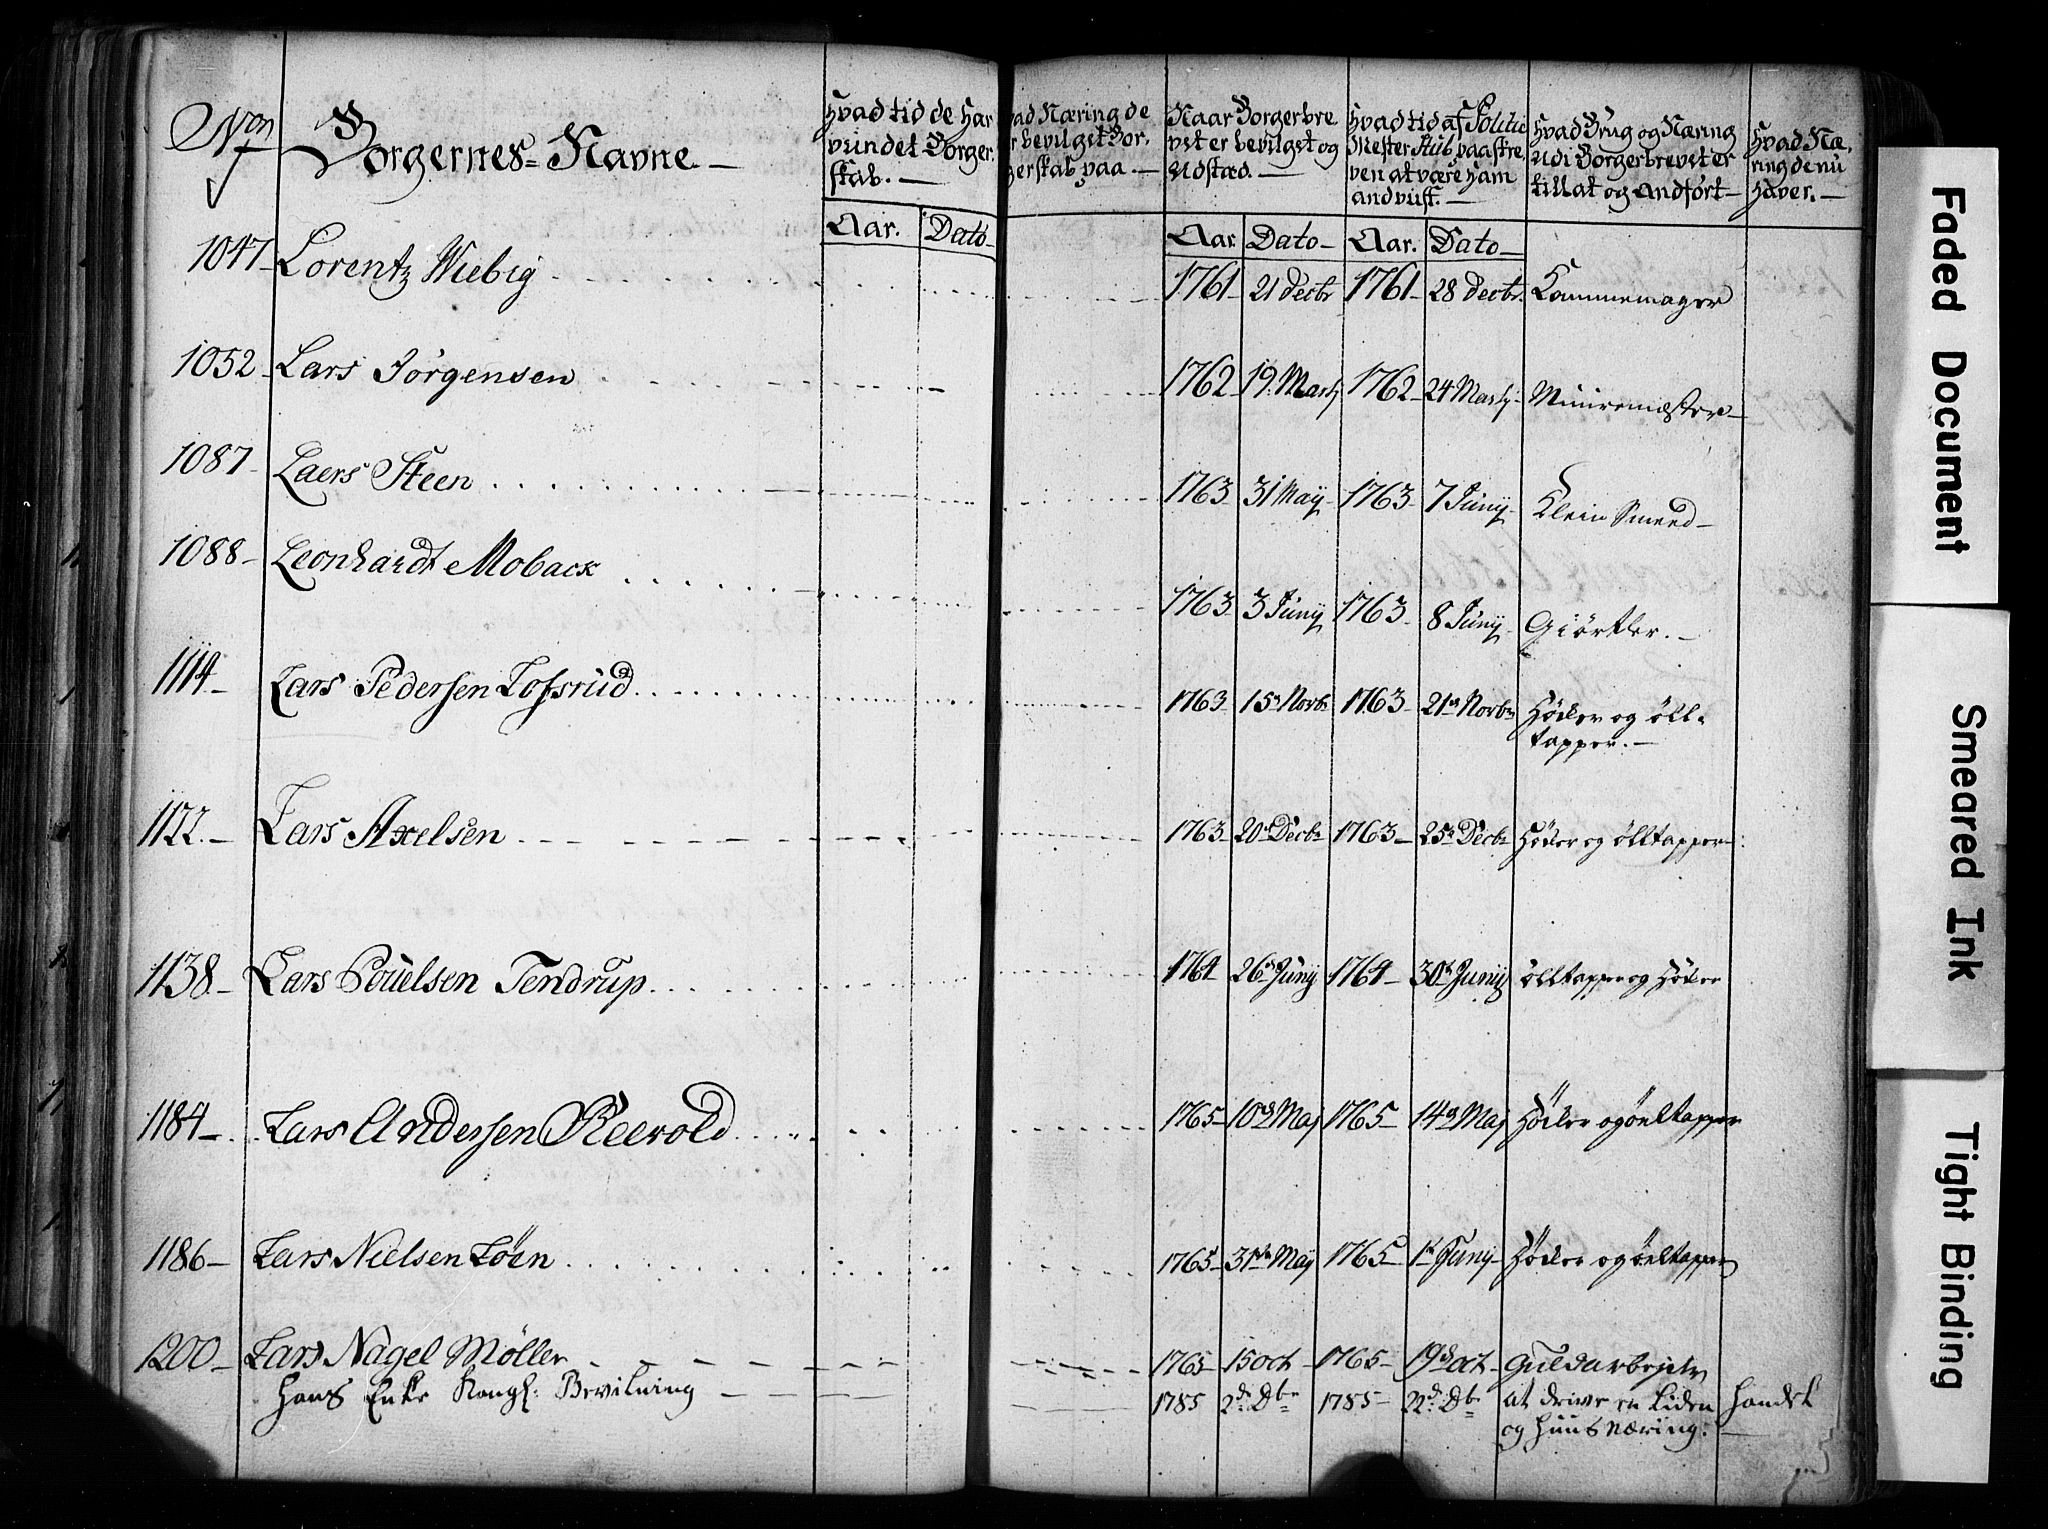 Non
Borgernes Navne —
Hvad tid de har
vundet Borger
skab. —
Aar. Dato
Næring de
bevilget Bor-
gerskab paa —
Naar Borgerbre
vet er bevilget og
Udstæd. —
Aar Dato
Hvad tid af Politie
Mester paaskre
ven at være ham
andvist. —
Aar. Dato
Hvad Brug og Næring
udi Borgerbrevet er
tillat og Andført —
Hvad Næ-
ring de nu
haver. —
1047 Lorentz Wiebig 1761 21 Decbr 1761 28 Decbr. Kammemager
1052 Lars Jörgensen 1762 19. Martj 1762 24 Martj Muuremæster
1087 Laers Steen 1763 31 Maij 1763 7 Junij Klein Smeed
1088 Leonhardt Moback 1763 3 Junij 1763 8 Junij Giörtler.
1114 Lars Pedersen Lofsrud 1763 15 Novbr 1763 21 Novbr Höker og öll-
tapper. —
1122. Lars Axelsen 1763 20 Decbr 1763 25 Decbr Höker og ölltapper
1138 Lars Pouelsen Tendrup 1764 26 Junij 1764 30 Junij ölltapper og Höker
1184 Lars Andersen Reevold 1765 10 Maj 1765 14 Maj Höker og öeltapper
1186 Lars Nielsen Löen 1765 31 Maj 1765 1 Junij Höker og öeltapper
1200 Lars Nagel Möller 1765 15 Oct 1765 19 Oct Guldarbejder
Hans Enke Kongl: Bevilning 1785 2d. Dbr 1785 22d. Dbr at drive en liden Handel
og Huus Næring:
Faded Document
Smeared Ink
Tight Binding